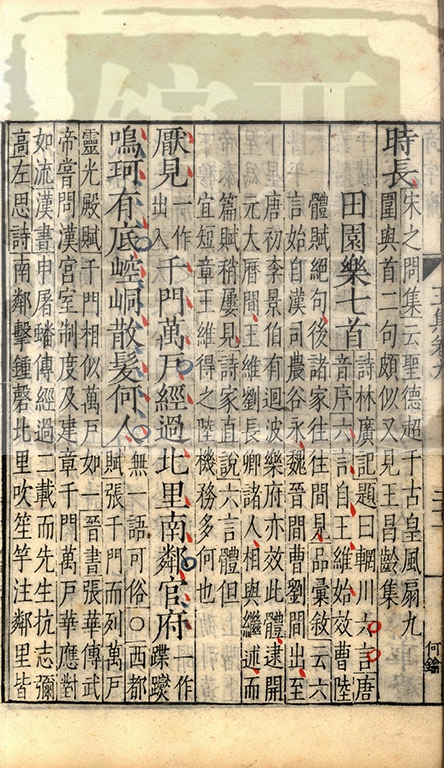 時長宋之問集云聖德超千古皇風扇九
圍與首二句頗似又見王昌齡集
田園樂七首詩林廣記題曰輞川六言唐
音序六言自王維始效曹陸
體賦絕句後諸家往往間見品彙敘云六
言始自漢司農谷永魏晉間曹劉間出至
唐初李景伯有迴波樂府亦效此體逮開
元大曆間王維劉長卿諸人相與繼述而
篇賦稍屢見詩家直說六言體但
宜短章王維得之陸機務多何也
厭見一作出入千門萬戶經過北里南鄰官府一作蹀躞
鳴珂有底崆峒散髮何人無一語可俗〇西都
賦張千門而列萬戶
靈光殿賦千門相似萬戶如一晉書張華傳武
帝嘗問漢宮室制度及建章千門萬戶華應對
如流漢書申屠蟠傳經過二載而先生抗志彌
高左思詩南鄰擊鍾磬北里吹笙竽注鄰里皆